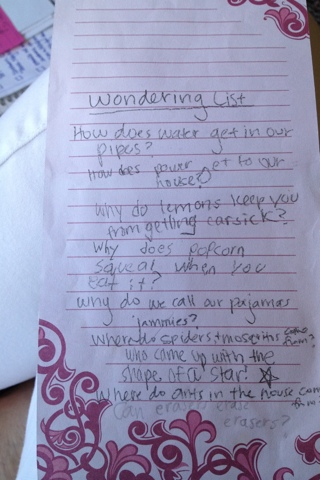 Wondering List
How does water get in our
pipes?
How does power get to our
house?
Why do lemons keep you
from getting carsick?
Why does popcorn
squeal when you
eat it?
why do we call our pajamas
jammies?
where do spiders + moscitos come
from?
who came up with the
shape of a star!
Where do ants in the house come
from?
Can erasers erase
erasers?